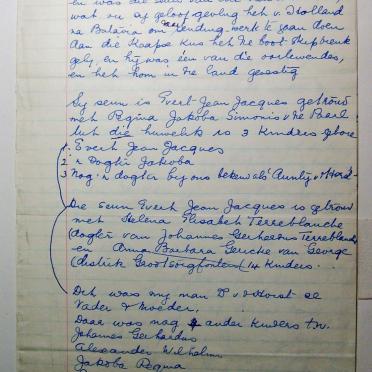 en was die seun van
wat vir sy geloof gevlug het v. Holland
na Batavia om sending werk te gaan doen
Aan die Kaapse kus het die boot skipbreuk
gely, en hy was één van die oorlewendes,
en het hom in die land gevestig
Sy seun is Evert Jean Jacques getroud
met Regina Jakoba Simonis v die Paarl
Uit die huwelik is 3 kinders gebore
1. Evert Jean Jacques
2. 'n Dogter Jakoba
3 Nog 'n dogter by ons bekend als Aunty v d Horst
Die seun Evert Jean Jacques is getroud
met Helena Elisabeth Terreblanche
(dogter van Johannes Gerhardus Terreblanche
en Anna Barbara Gericke van George
(distrik Grootsorgfontein) 14 Kinders.
Dit was my man D v d Horst se
Vader & Moeder.
Daar was nog ander kinders t.w.
Johannes Gerhardus
Alexander Wilhelm
Jakoba Regina